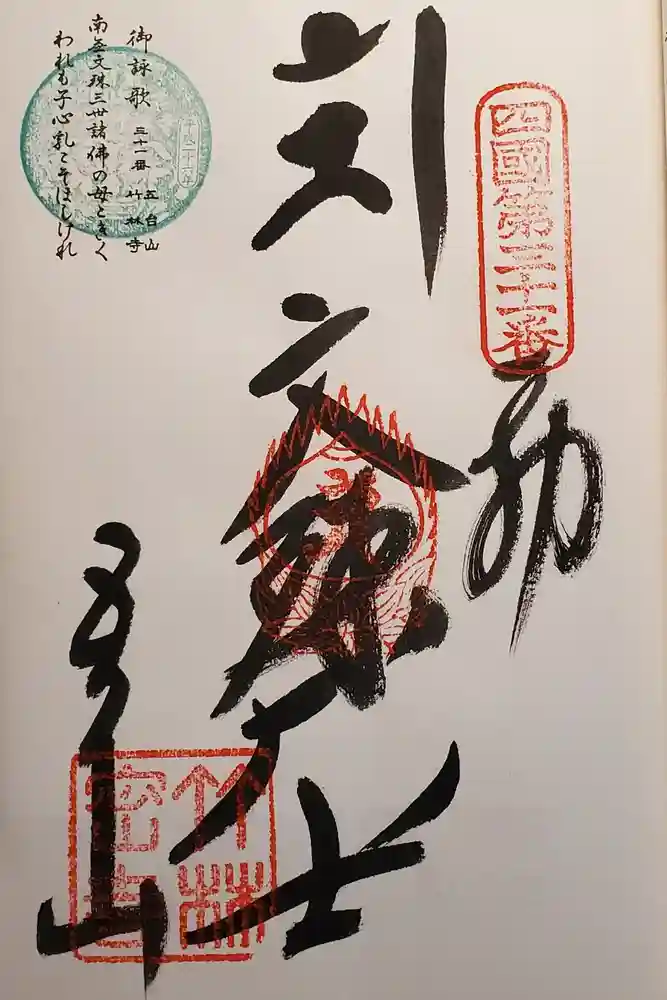 四國第三十一番
文殊大士
五台山
竹林
密寺
御詠歌 三十一番 五台山
竹林寺
南無文珠三世諸佛の母ときく
われも子心乳こそほしけれ